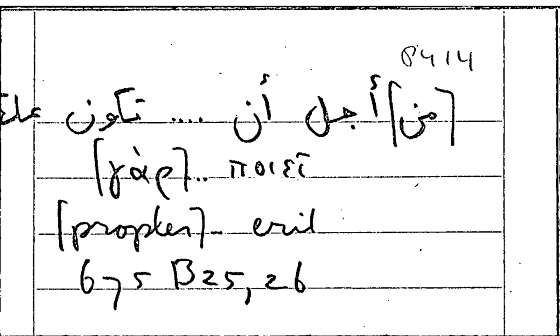 P414
[من] أجل أن .... تكون علة
[γὰρ].. ποιεῖ
[propter].. erit
675 B25, 26